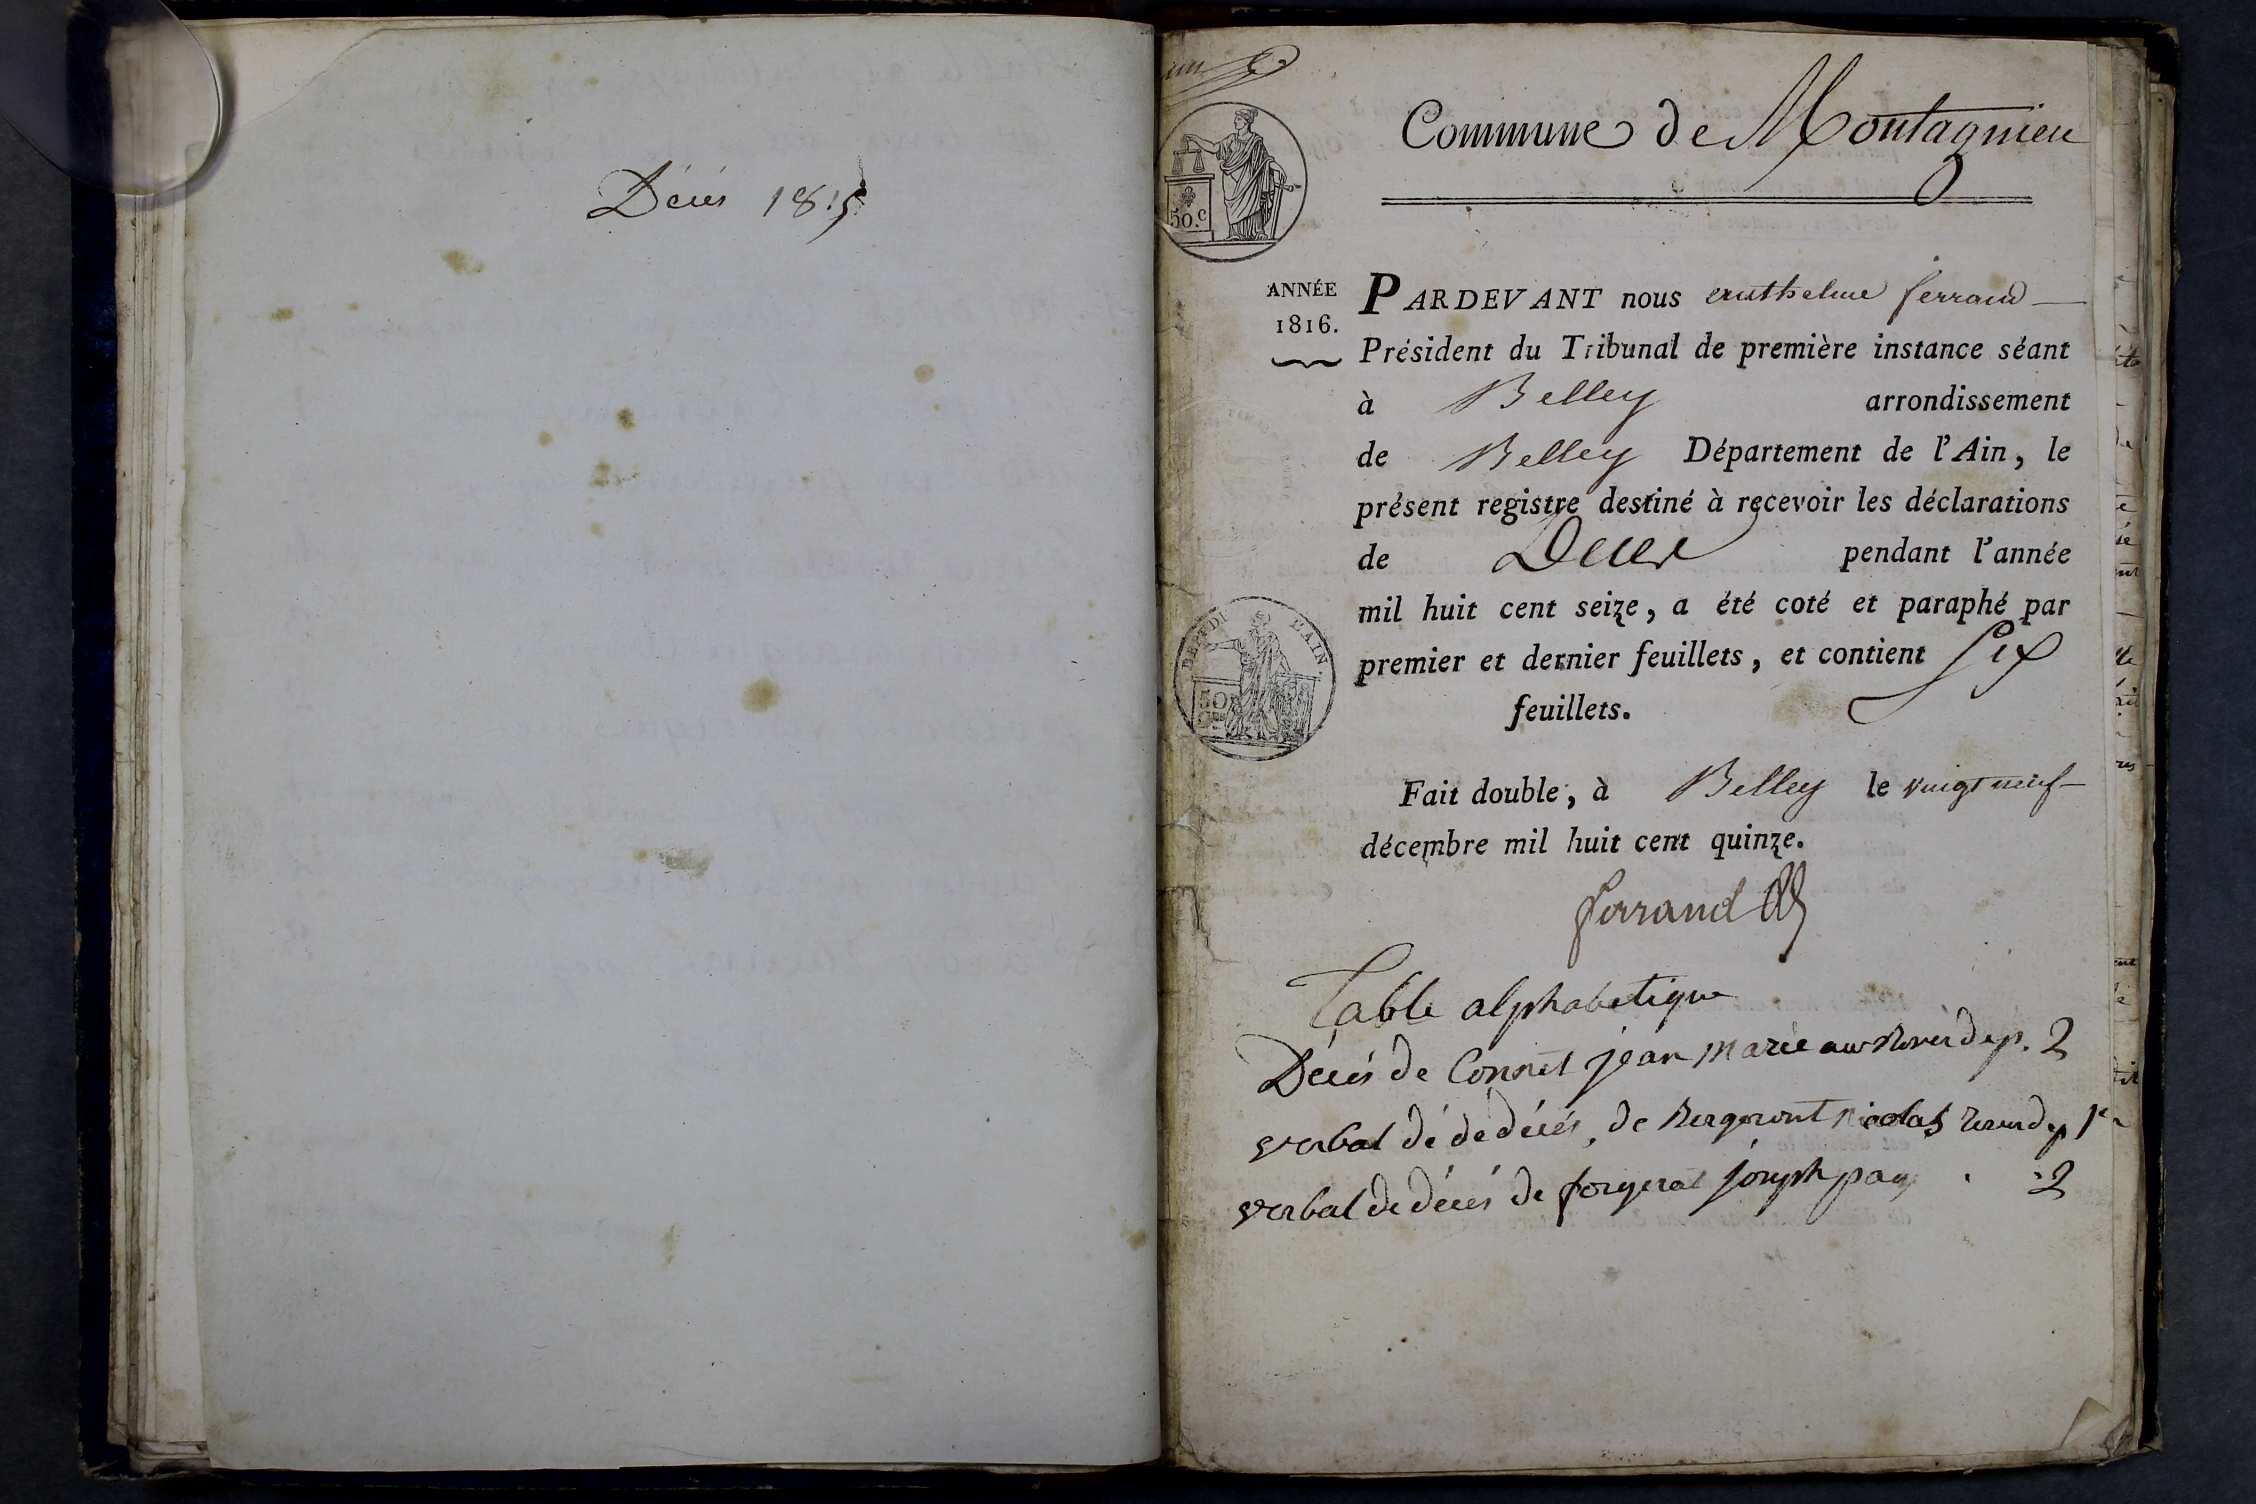 Décés 1815
Commune de Montagnieu
50.c
ANNÉE
1816.
PARDEVANT nous anthelme ferrand
Président du Tribunal de première instance séant
à Belley arrondissement
de Belley Département de l'Ain, le
présent registre destiné à recevoir les déclarations
de Deces pendant l'année
mil huit cent seize, a été coté et paraphé par
premier et dernier feuillets, et contient Six
feuillets.
L'AIN
50
Fait double, à Belley le vingt neuf
décembre mil huit cent quinze.
ferrand
Table alphabetique
Décés de Connet jean marie 2
verbal dé de décés, de Bergeront nicolas 1er
verbal de décés de forgerat joseph pag 2